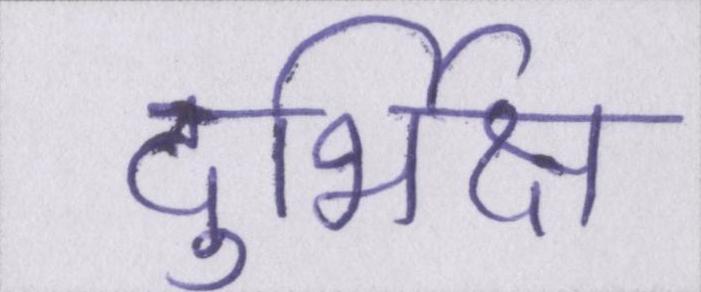 दुर्भिक्ष